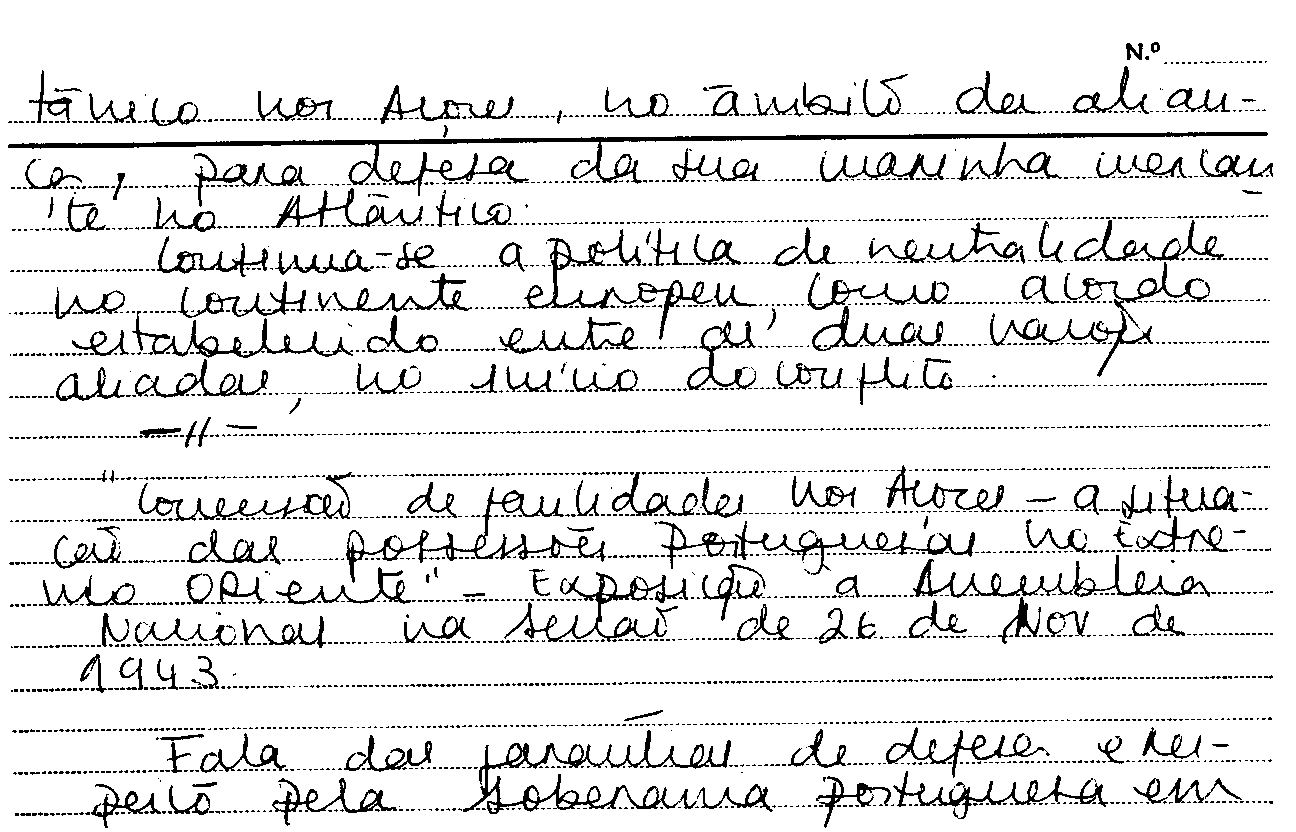 N.º
tânico nos Açores, no âmbito da alian-
ça, para defesa da sua marinha mercan
te no Atlântico.
Continua-se a política de neutralidade
no continente europeu, como acordo
estabelecido entre as duas nações
aliadas, no início do conflito.
—//—
"Concessão de facilidades nos Açores – a situa-
ção das possessões Portuguesas no Extre-
mo ORiente" – Exposição a Assembleia
Nacional na sessão de 26 de Nov de
1943.
Fala das garantias de defesa e res-
peito pela soberania portuguesa em